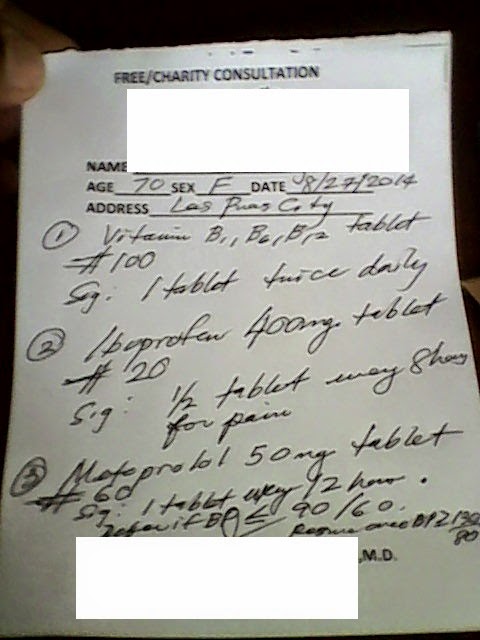 FREE/CHARITY CONSULTATION
NAME
AGE 70 SEX F DATE 08/27/2014
ADDRESS Las Pinas City
① Vitamin B1, B6, B12 tablet
#100
Sig: 1 tablet twice daily
② Ibuprofen 400mg tablet
# 20
Sig: 1/2 tablet every 8 hours
for pain
③ Metoprolol 50mg tablet
# 60
Sig: 1 tablet every 12 hour.
Defer if BP ≤ 90/60.
Resume once BP ≥ 130/80
,M.D.